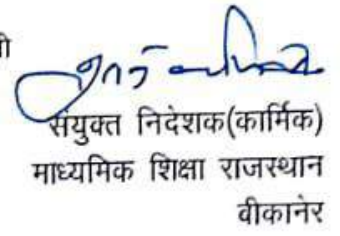 संयुक्त निदेशक(कार्मिक)
माध्यमिक शिक्षा राजस्थान
वीकानेर